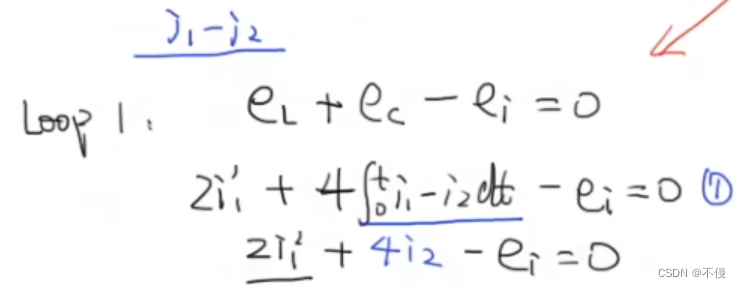 i₁-i₂
Loop 1:
e_L + e_c - e_i = 0
2i₁' + 4∫₀ᵗ i₁-i₂dt - e_i = 0 ①
2i₁' + 4i₂ - e_i = 0
CSDN @不侵